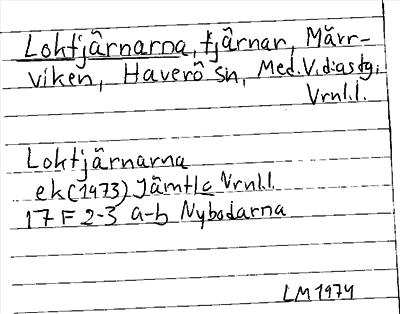 Loktjärnarna, tjärnar, Märr-
viken, Haverö sn, Med. V. dsdg.,
Vrnl.l.
Loktjärnarna
ek (1973) Jämtl c Vrnl.l.
17 F 2-3 a-b Nybodarna
LM 1974